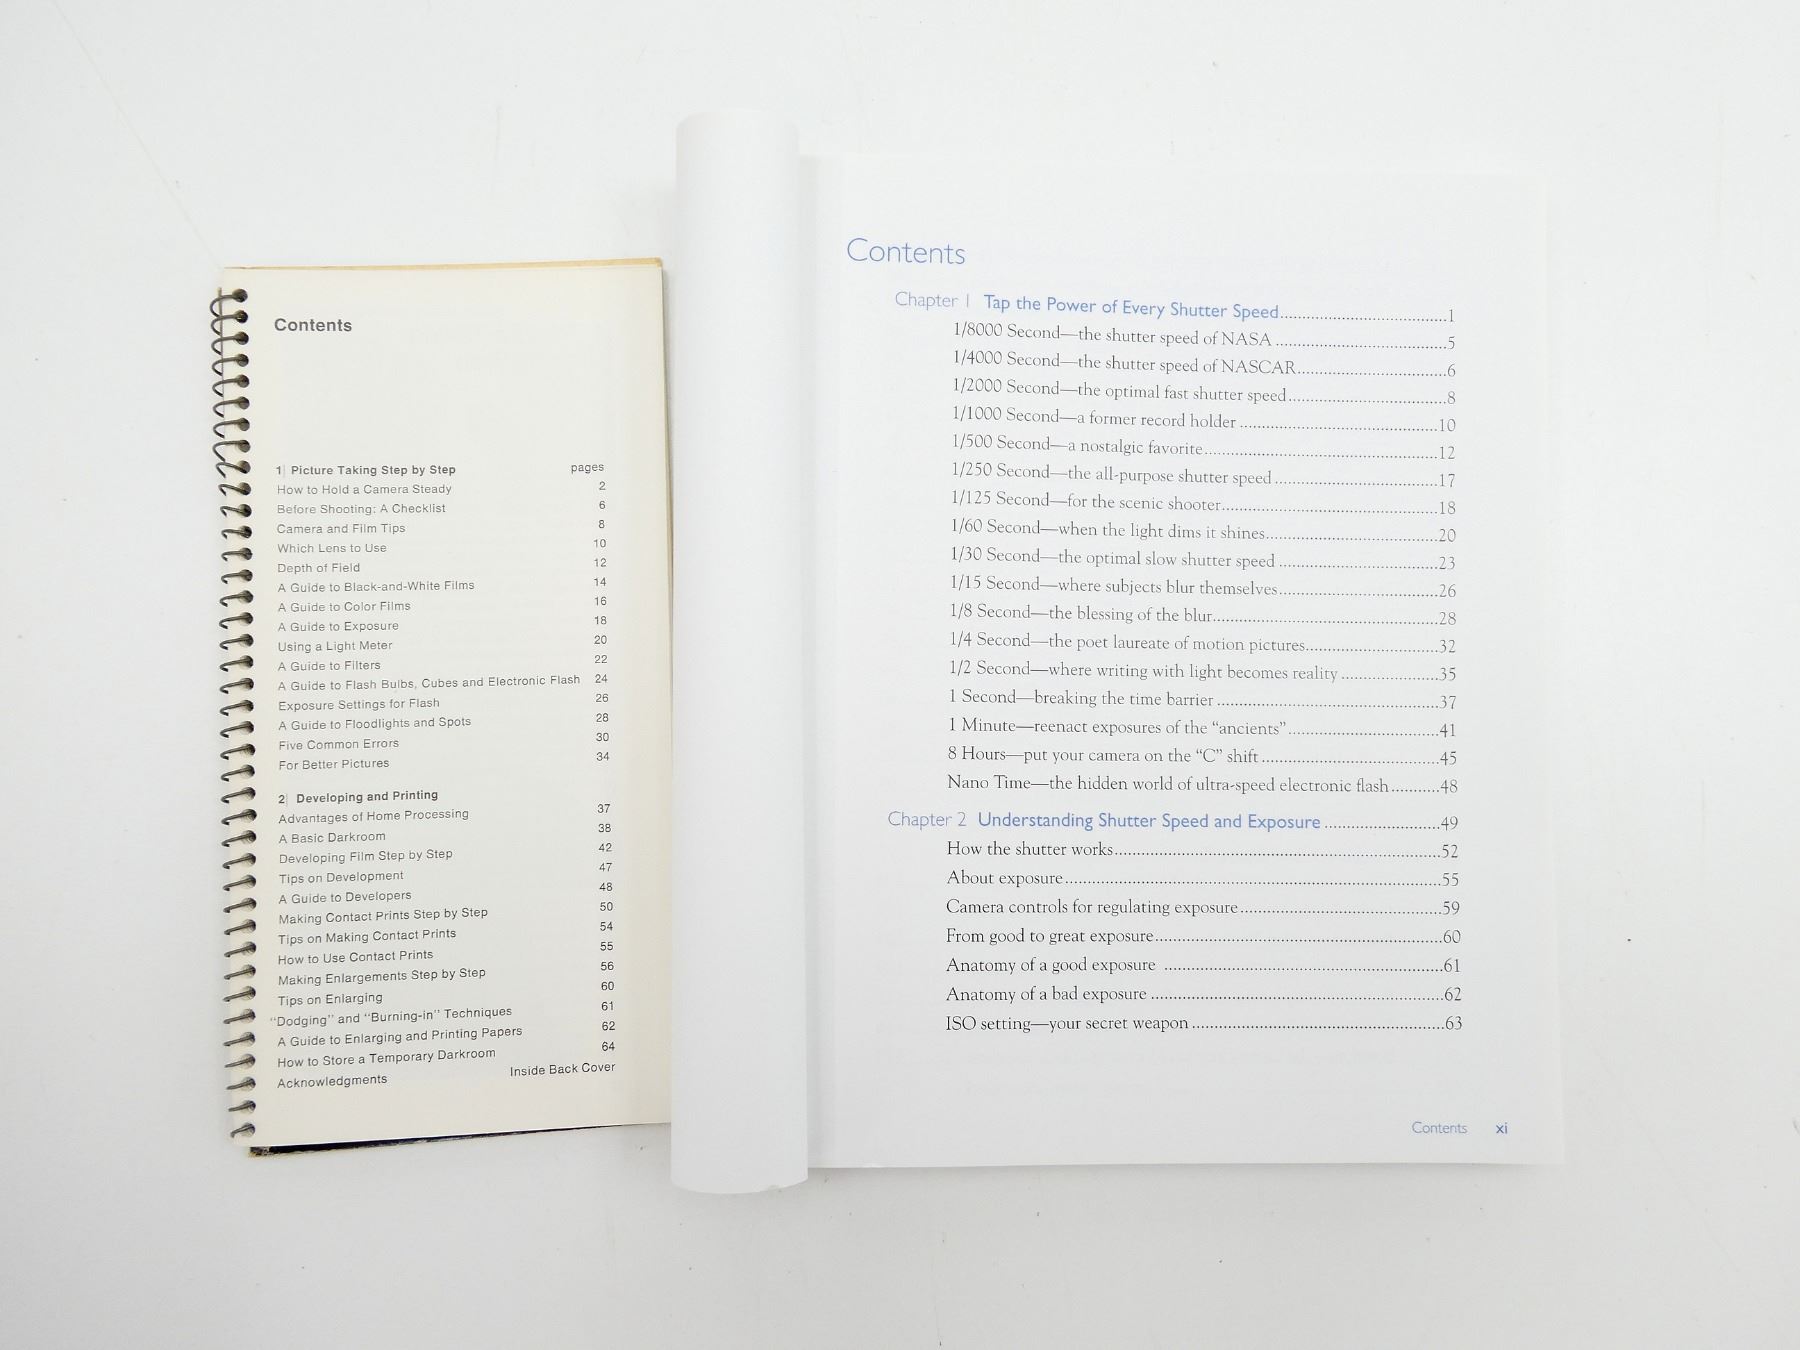 Contents
1| Picture Taking Step by Step pages
How to Hold a Camera Steady 2
Before Shooting: A Checklist 6
Camera and Film Tips 8
Which Lens to Use 10
Depth of Field 12
A Guide to Black-and-White Films 14
A Guide to Color Films 16
A Guide to Exposure 18
Using a Light Meter 20
A Guide to Filters 22
A Guide to Flash Bulbs, Cubes and Electronic Flash 24
Exposure Settings for Flash 26
A Guide to Floodlights and Spots 28
Five Common Errors 30
For Better Pictures 34
2| Developing and Printing
Advantages of Home Processing 37
A Basic Darkroom 38
Developing Film Step by Step 42
Tips on Development 47
A Guide to Developers 48
Making Contact Prints Step by Step 50
Tips on Making Contact Prints 54
How to Use Contact Prints 55
Making Enlargements Step by Step 56
Tips on Enlarging 60
"Dodging" and "Burning-in" Techniques 61
A Guide to Enlarging and Printing Papers 62
How to Store a Temporary Darkroom 64
Acknowledgments Inside Back Cover
Contents
Chapter 1 Tap the Power of Every Shutter Speed....................1
1/8000 Second—the shutter speed of NASA....................5
1/4000 Second—the shutter speed of NASCAR....................6
1/2000 Second—the optimal fast shutter speed....................8
1/1000 Second—a former record holder....................10
1/500 Second—a nostalgic favorite....................12
1/250 Second—the all-purpose shutter speed....................17
1/125 Second—for the scenic shooter....................18
1/60 Second—when the light dims it shines....................20
1/30 Second—the optimal slow shutter speed....................23
1/15 Second—where subjects blur themselves....................26
1/8 Second—the blessing of the blur....................28
1/4 Second—the poet laureate of motion pictures....................32
1/2 Second—where writing with light becomes reality....................35
1 Second—breaking the time barrier....................37
1 Minute—reenact exposures of the "ancients"....................41
8 Hours—put your camera on the "C" shift....................45
Nano Time—the hidden world of ultra-speed electronic flash..........48
Chapter 2 Understanding Shutter Speed and Exposure....................49
How the shutter works....................52
About exposure....................55
Camera controls for regulating exposure....................59
From good to great exposure....................60
Anatomy of a good exposure....................61
Anatomy of a bad exposure....................62
ISO setting—your secret weapon....................63
Contents xi